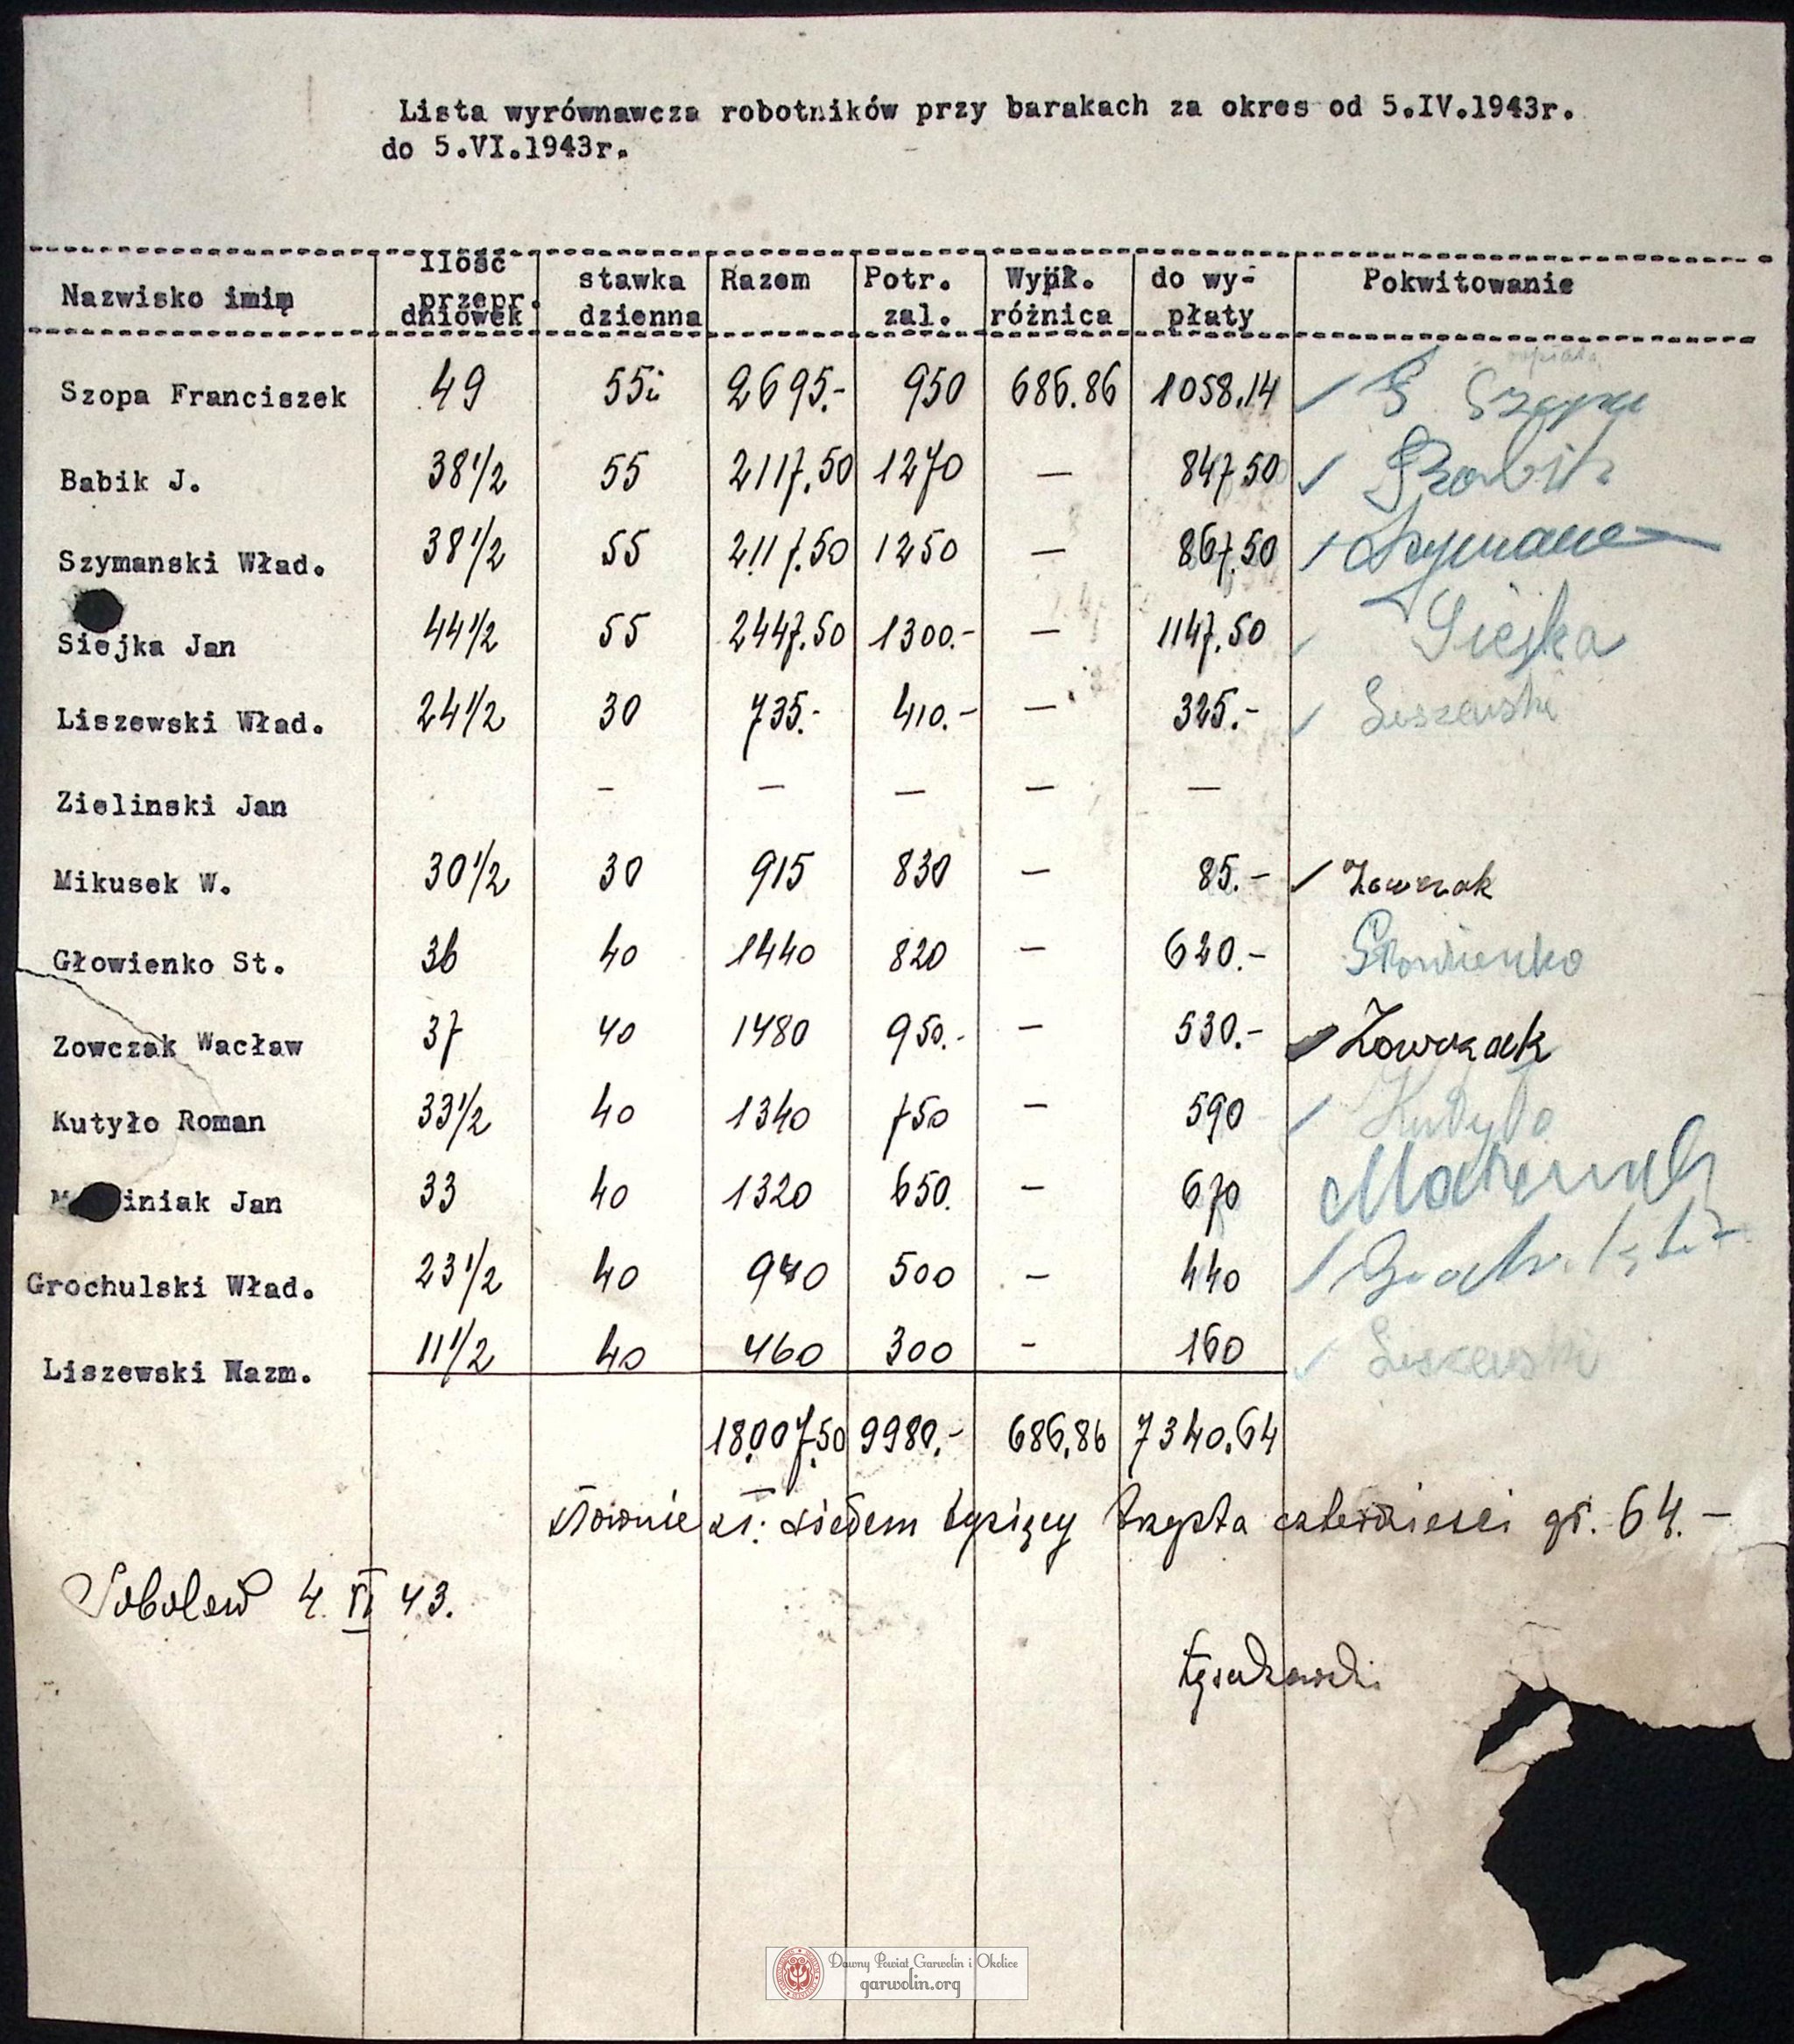 Lista wyrównawcza robotników przy barakach za okres od 5.IV.1943r.
do 5.VI.1943r.
Nazwisko imię Ilość przepr. dniówek stawka dzienna Razem Potr. zal. Wypł. różnica do wy-płaty Pokwitowanie
Szopa Franciszek 49 55 2695.- 950 686.86 1058.14 Szopa
Babik J. 38 1/2 55 2117.50 1270 — 847.50 Babik
Szymanski Wład. 38 1/2 55 2117.50 1250 — 867.50
Siejka Jan 44 1/2 55 2447.50 1300.- — 1147.50 Siejka
Liszewski Wład. 24 1/2 30 735.- 410.- — 325.- Liszewski
Zielinski Jan — — — — —
Mikusek W. 30 1/2 30 915 830 — 85.- Zowczak
Głowienko St. 36 40 1440 820 — 620.- Głowienko
Zowczak Wacław 37 40 1480 950.- — 530.- Zowczak
Kutyło Roman 33 1/2 40 1340 750 — 590 Kutyło
iniak Jan 33 40 1320 650. — 670
Grochulski Wład. 23 1/2 40 940 500 — 440
Liszewski Kazm. 11 1/2 40 460 300 - 160 Liszewski
18.007.50 9980.- 686.86 7340.64
słownie zł. siedem tysięcy trzysta czterdzieści gr. 64.-
Sobolew 4. VI 43.
Dawny Powiat Garwolin i Okolice
garwolin.org